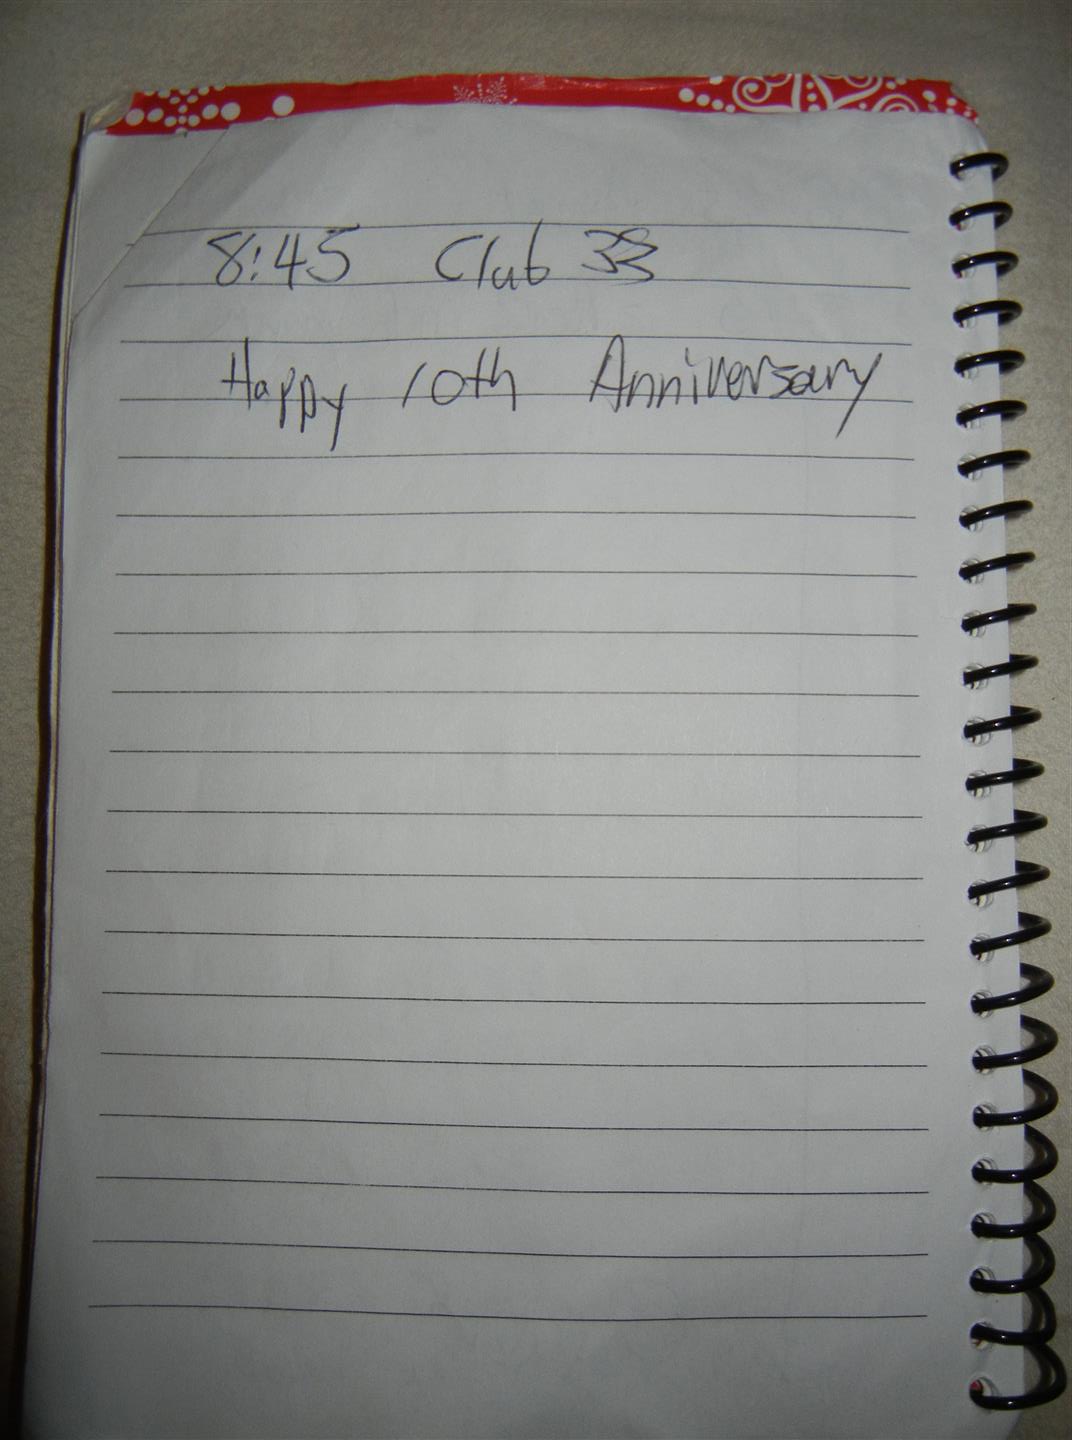 8:45 Club 33
Happy 10th Anniversary